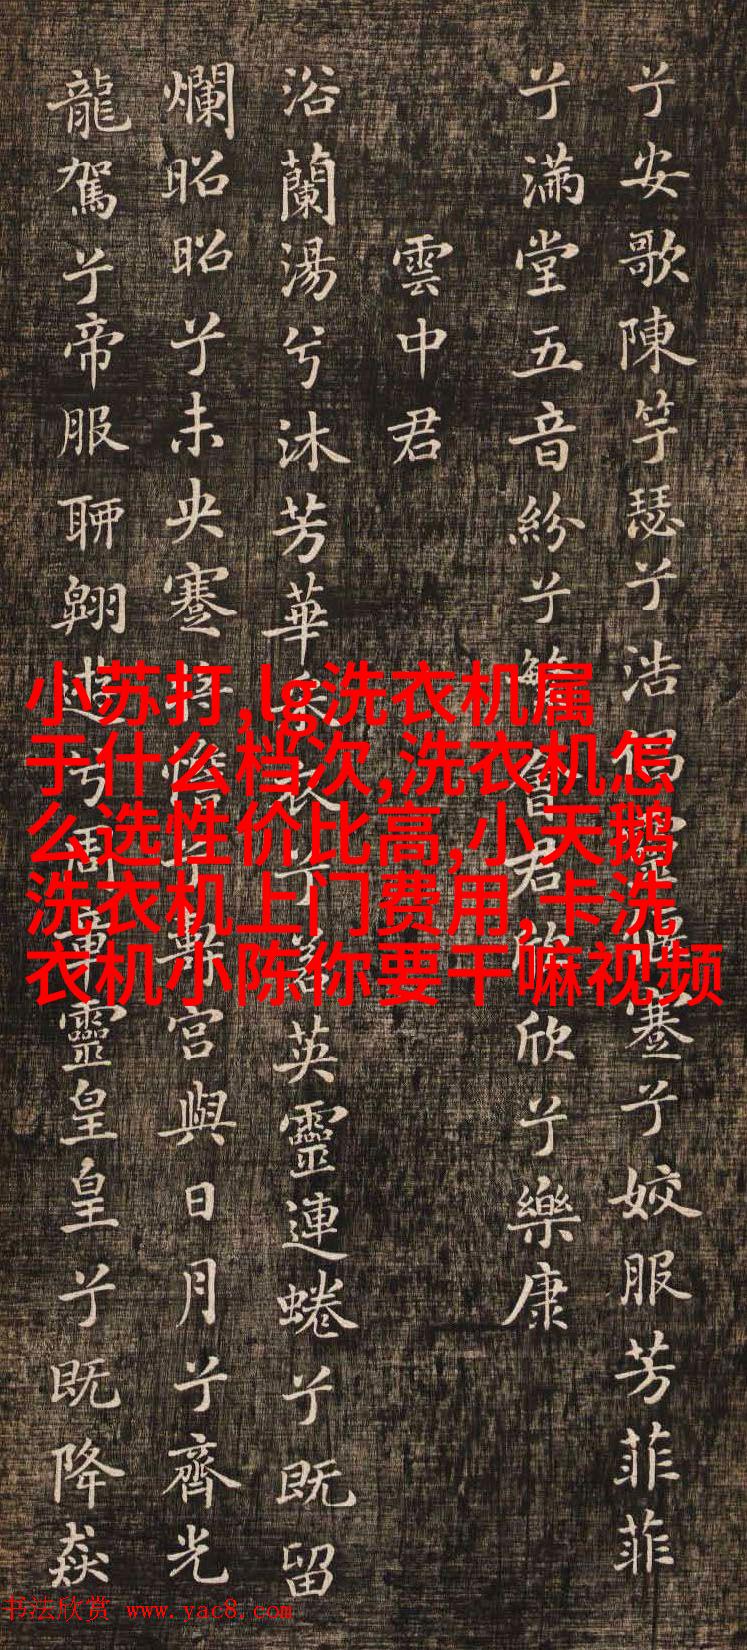 兮安歌陳竽瑟兮浩倡靈偃蹇兮姣服芳菲菲
兮滿堂五音紛兮繁會君欣欣兮樂康
雲中君
浴蘭湯兮沐芳華采衣兮若英靈連蜷兮既留
爛昭昭兮未央蹇將憺兮壽宮與日月兮齊光
龍駕兮帝服聊翱遊兮周章靈皇皇兮既降猋
小苏打,lg洗衣机属
于什么档次,洗衣机怎
么选性价比高,小天鹅
洗衣机上门费用,卡洗
衣机小陈你要干嘛视频
书法欣赏 www.yac8.com